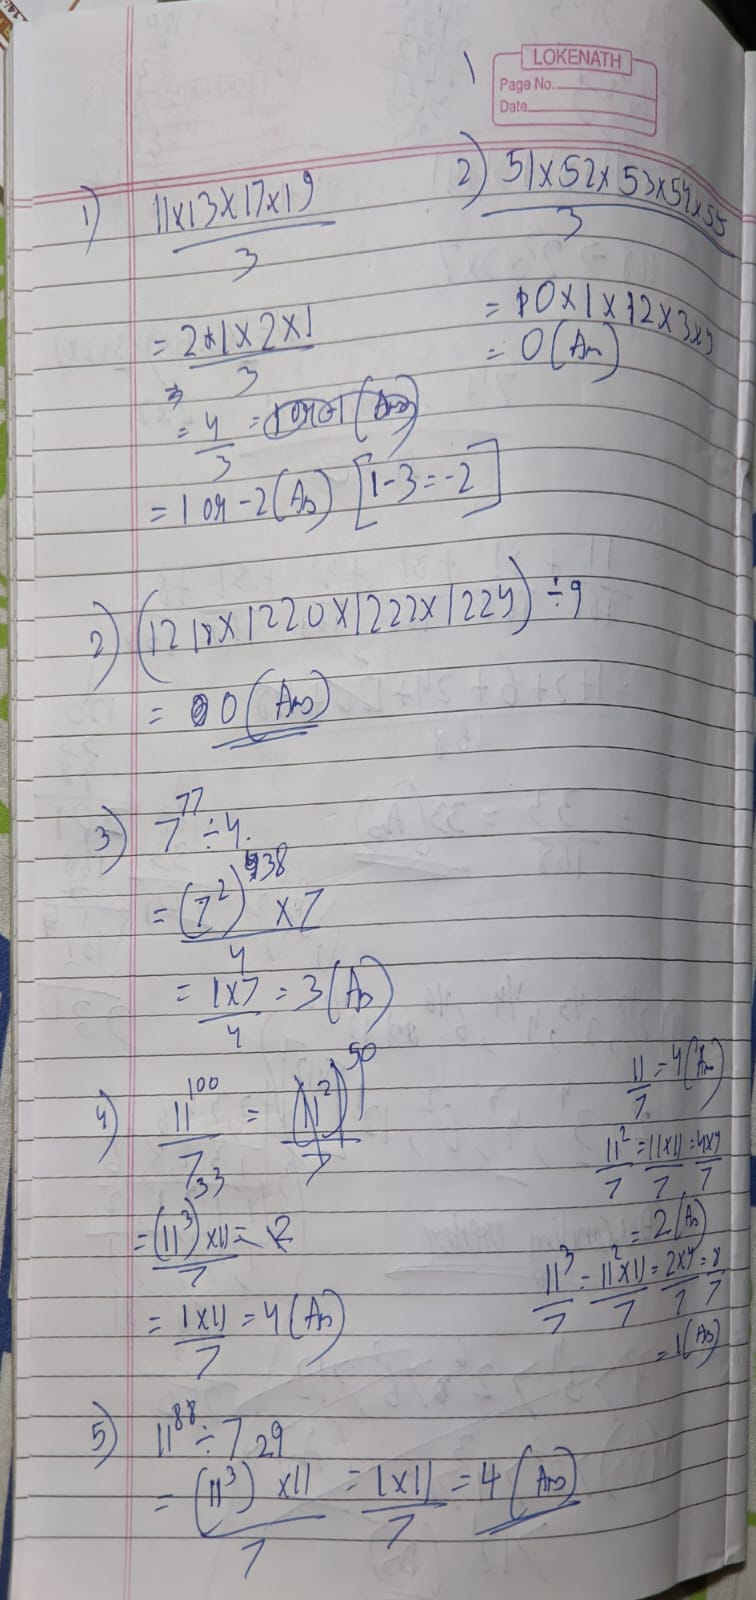 1
LOKENATH
Page No.
Date
1) 11x13x17x19 / 3
= 2x1x2x1 / 3
= 4/3 = (Ans)
= 1 or -2 (Ans) [1-3=-2]
2) 51x52x53x54x55 / 3
= 0x1x2x3x
= 0 (Ans)
2) (1218x1220x1222x1224) ÷9
= 0 (Ans)
3) 7^77 ÷4.
= (7^2)^38 x7 / 4
= 1x7 / 4 = 3 (Ans)
4) 11^100 / 7 = (11^2)^50 / 7
= (11^3)^33 x11 / 7 =
= 1x11 / 7 = 4 (Ans)
11/7 = 4 (Ans)
11^2 / 7 = 11x11 / 7 = 4x4 / 7
= 2 (Ans)
11^3 / 7 = 11^2x11 / 7 = 2x4 / 7 = 8/7
= 1 (Ans)
5) 11^88 ÷7
= (11^3)^29 x11 / 7 = 1x11 / 7 = 4 (Ans)